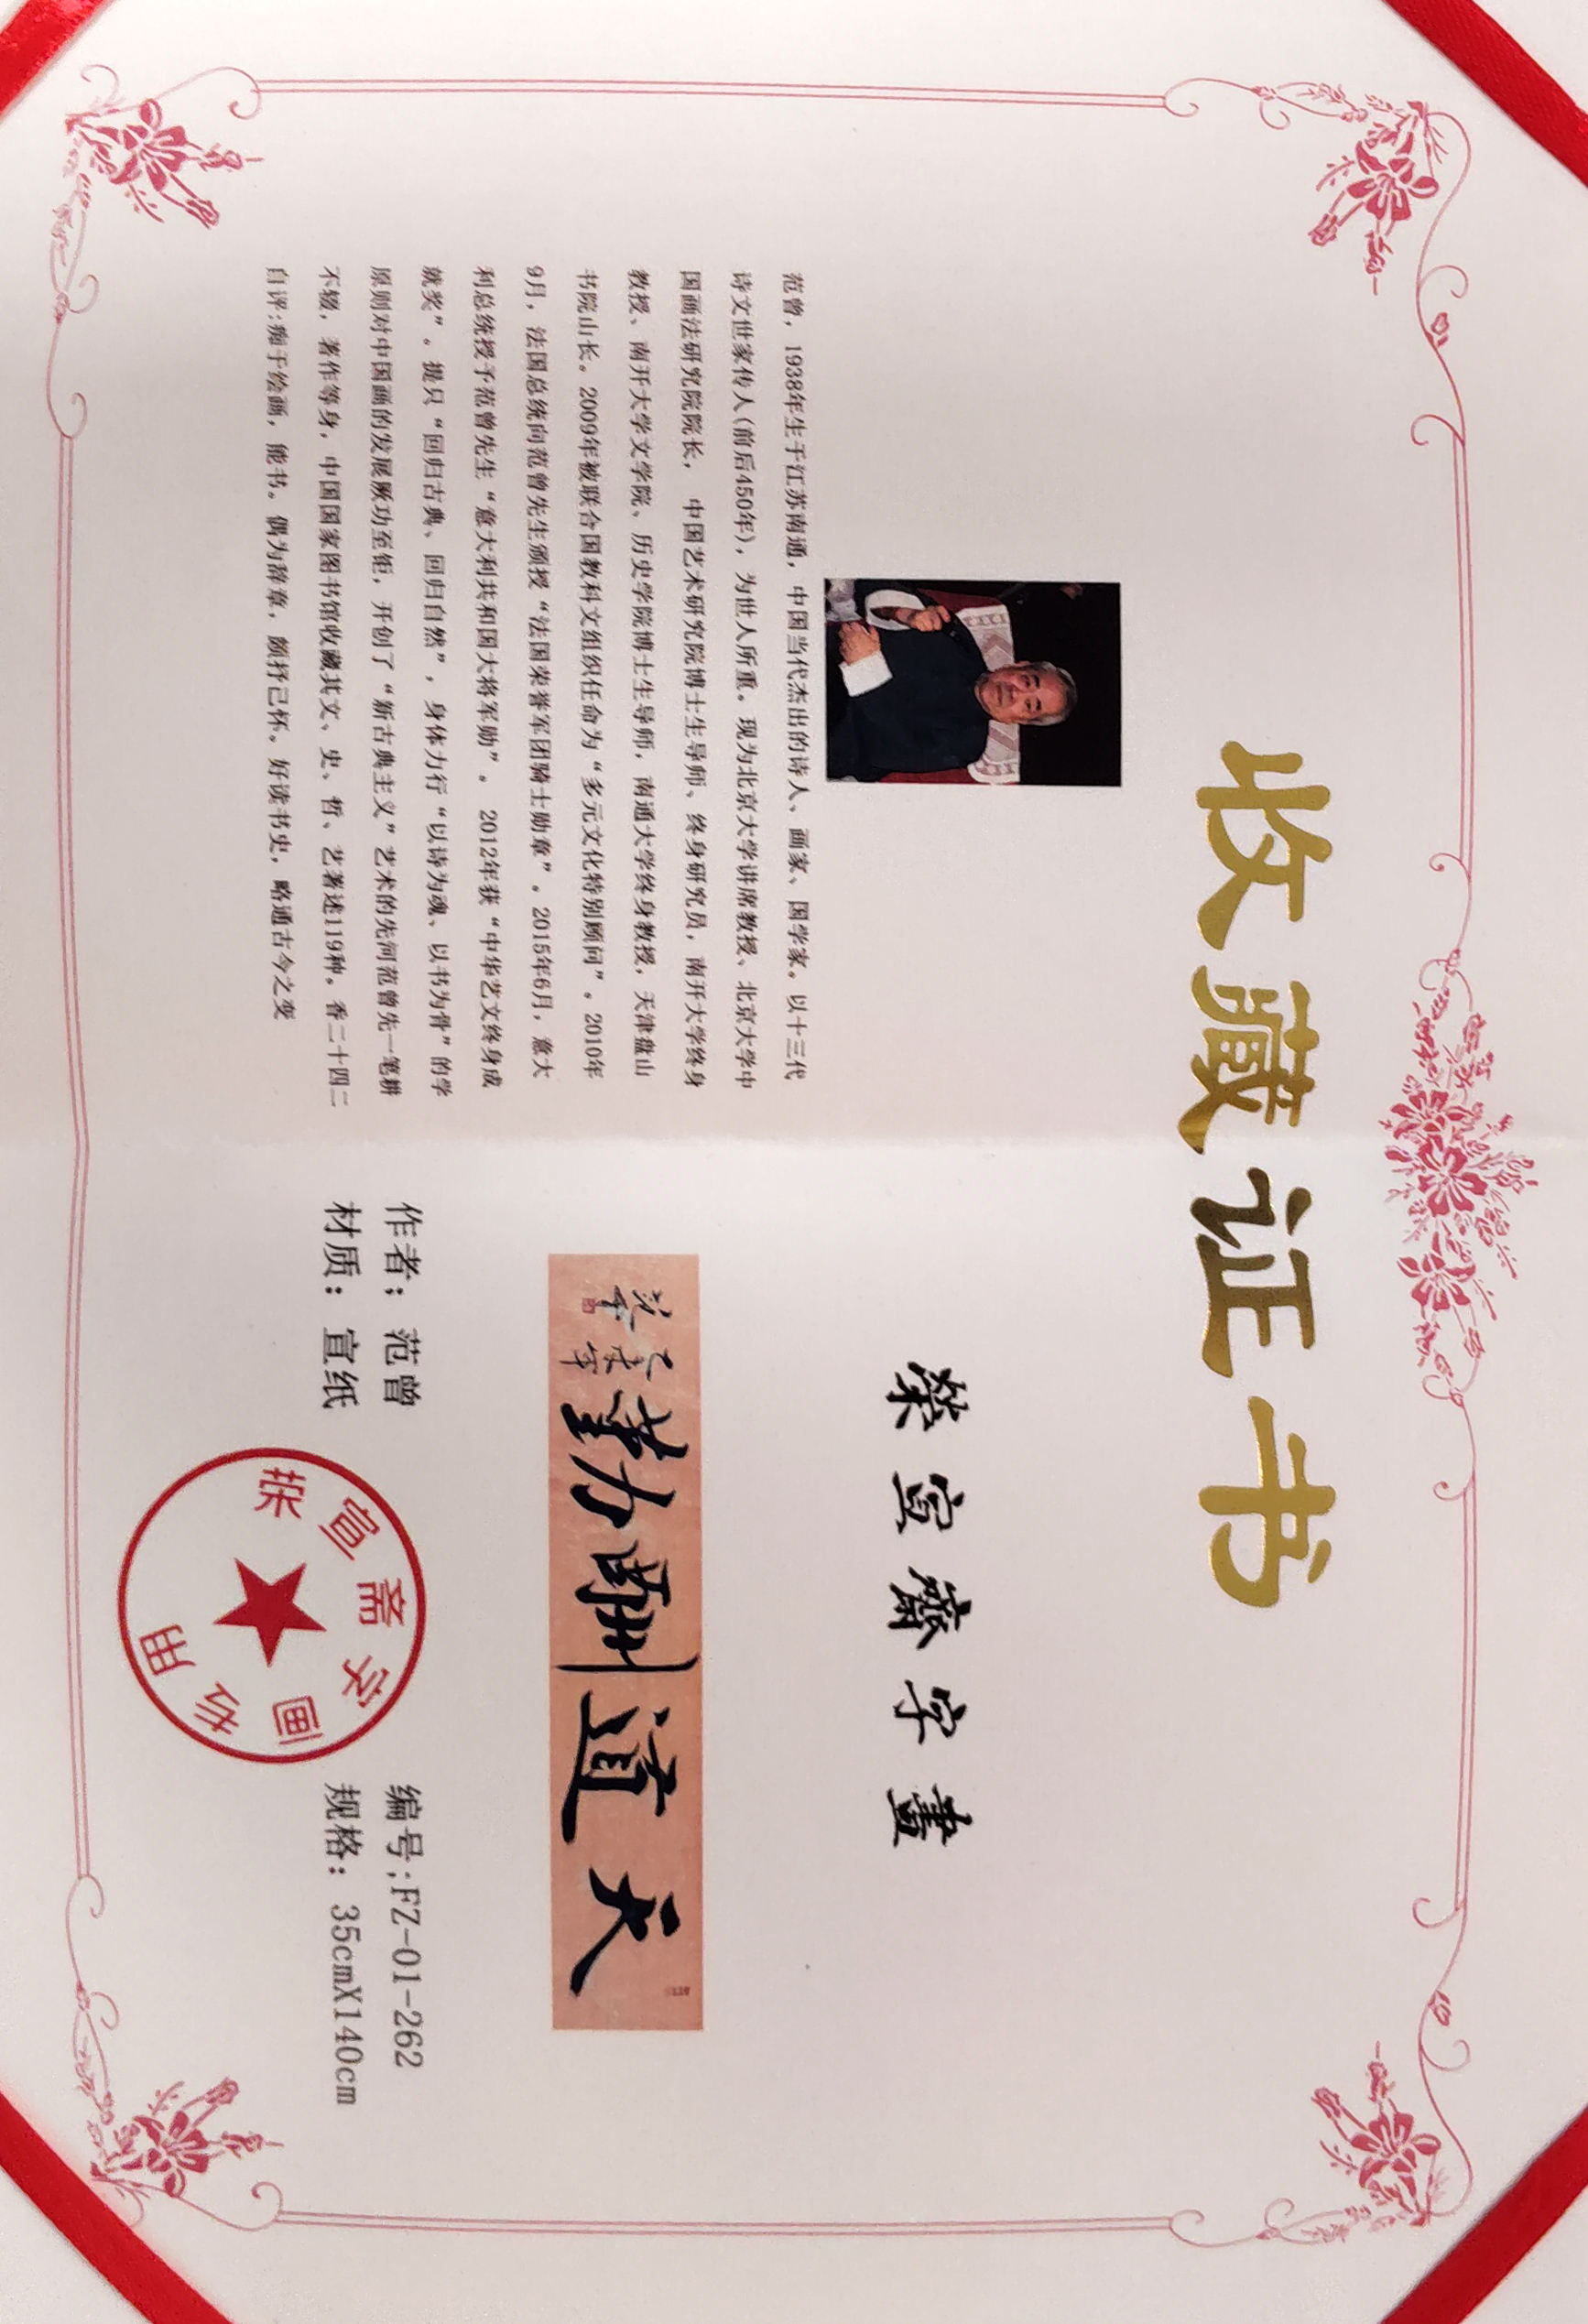 收藏证书
范曾，1938年生于江苏南通，中国当代杰出的诗人、画家、国学家。以十三代
诗文世家传人(前后450年)，为世人所重。现为北京大学讲席教授、北京大学中
国画法研究院院长， 中国艺术研究院博士生导师、终身研究员，南开大学终身
教授、南开大学文学院、历史学院博士生导师，南通大学终身教授，天津盘山
书院山长。2009年被联合国教科文组织任命为“多元文化特别顾问”。2010年
9月，法国总统向范曾先生颁授“法国荣誉军团骑士勋章”。2015年6月，意大
利总统授予范曾先生“意大利共和国大将军勋”。 2012年获“中华艺文终身成
就奖”。提只“回归古典、回归自然”，身体力行“以诗为魂、以书为骨”的学
原则对中国画的发展厥功至钜，开创了“新古典主义”艺术的先河范曾先一笔耕
不辍，著作等身，中国国家图书馆收藏其文、史、哲、艺著述119种。香二十四二
自评:痴于绘画，能书。偶为辞章，颇抒己怀。好读书史，略通古今之变
榮宣齋字畫
天道酬勤
范曾
作者：范曾
编号:FZ-01-262
材质：宣纸
规格：35cmX140cm
荣宣斋字画专用